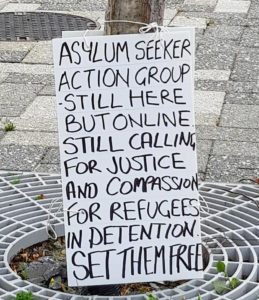 ASYLUM SEEKER
ACTION GROUP
- STILL HERE
BUT ONLINE.
STILL CALLING
FOR JUSTICE
AND COMPASSION
FOR REFUGEES
IN DETENTION.
SET THEM FREE